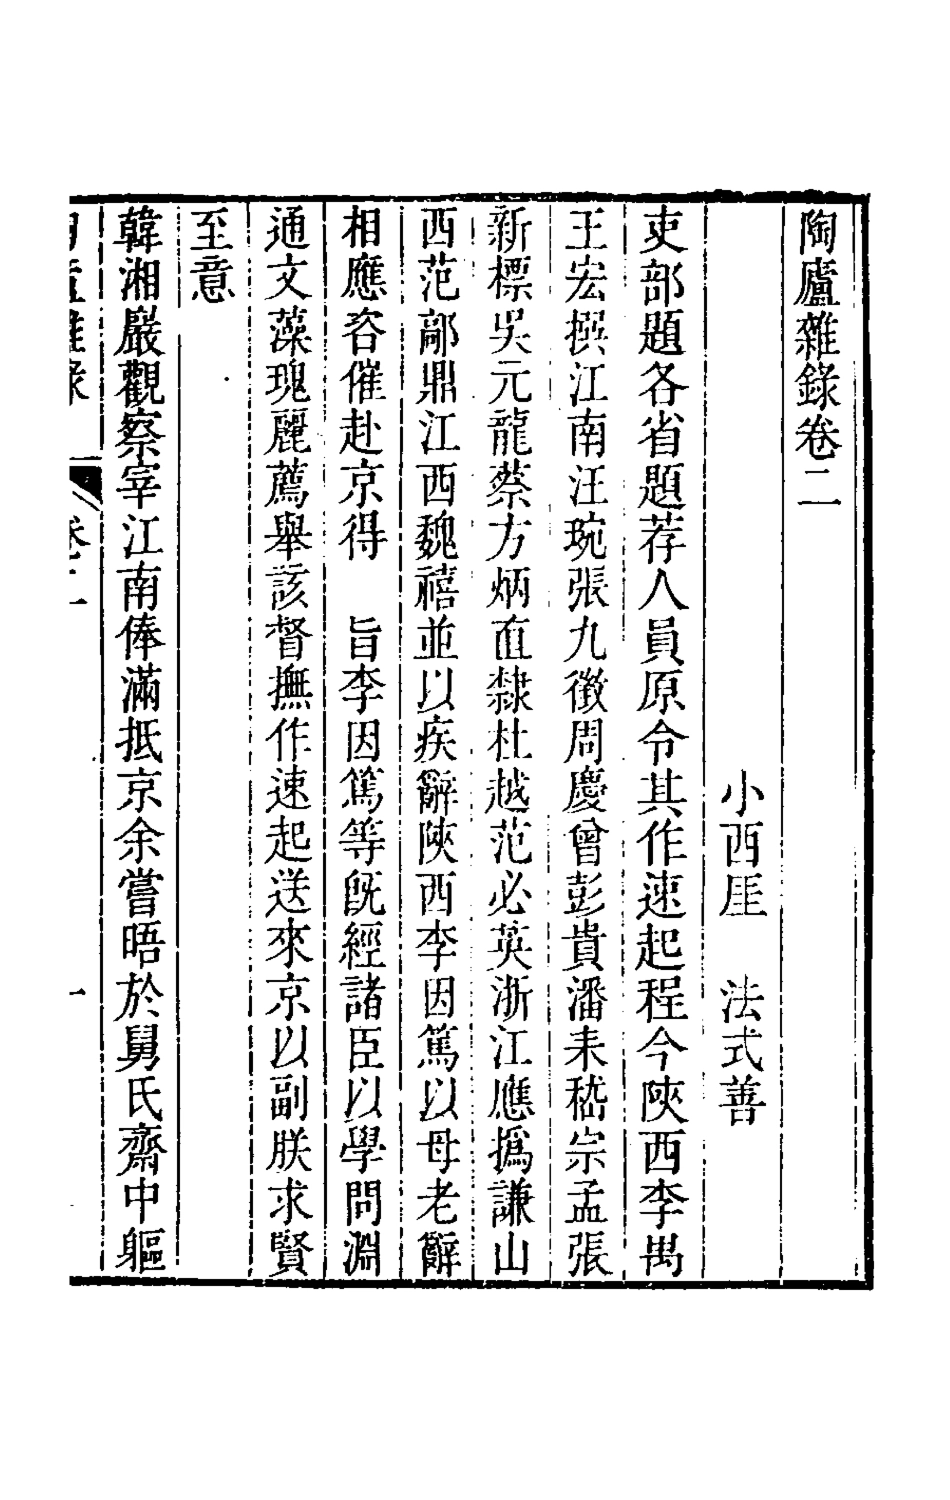 陶廬雜錄卷二
小西厓　法式善
吏部題各省題荐人員原令其作速起程今陝西李禺
王宏撰江南汪琬張九徵周慶曾彭貴潘耒嵇宗孟張
新標吳元龍蔡方炳直隸杜越范必英浙江應撝謙山
西范鄗鼎江西魏禧並以疾辭陝西李因篤以母老辭
相應咨催赴京得　旨李因篤等旣經諸臣以學問淵
通文藻瑰麗薦舉該督撫作速起送來京以副朕求賢
至意
韓湘巖觀察宰江南俸滿抵京余嘗晤於舅氏齋中軀
陶廬雜錄　卷二　一